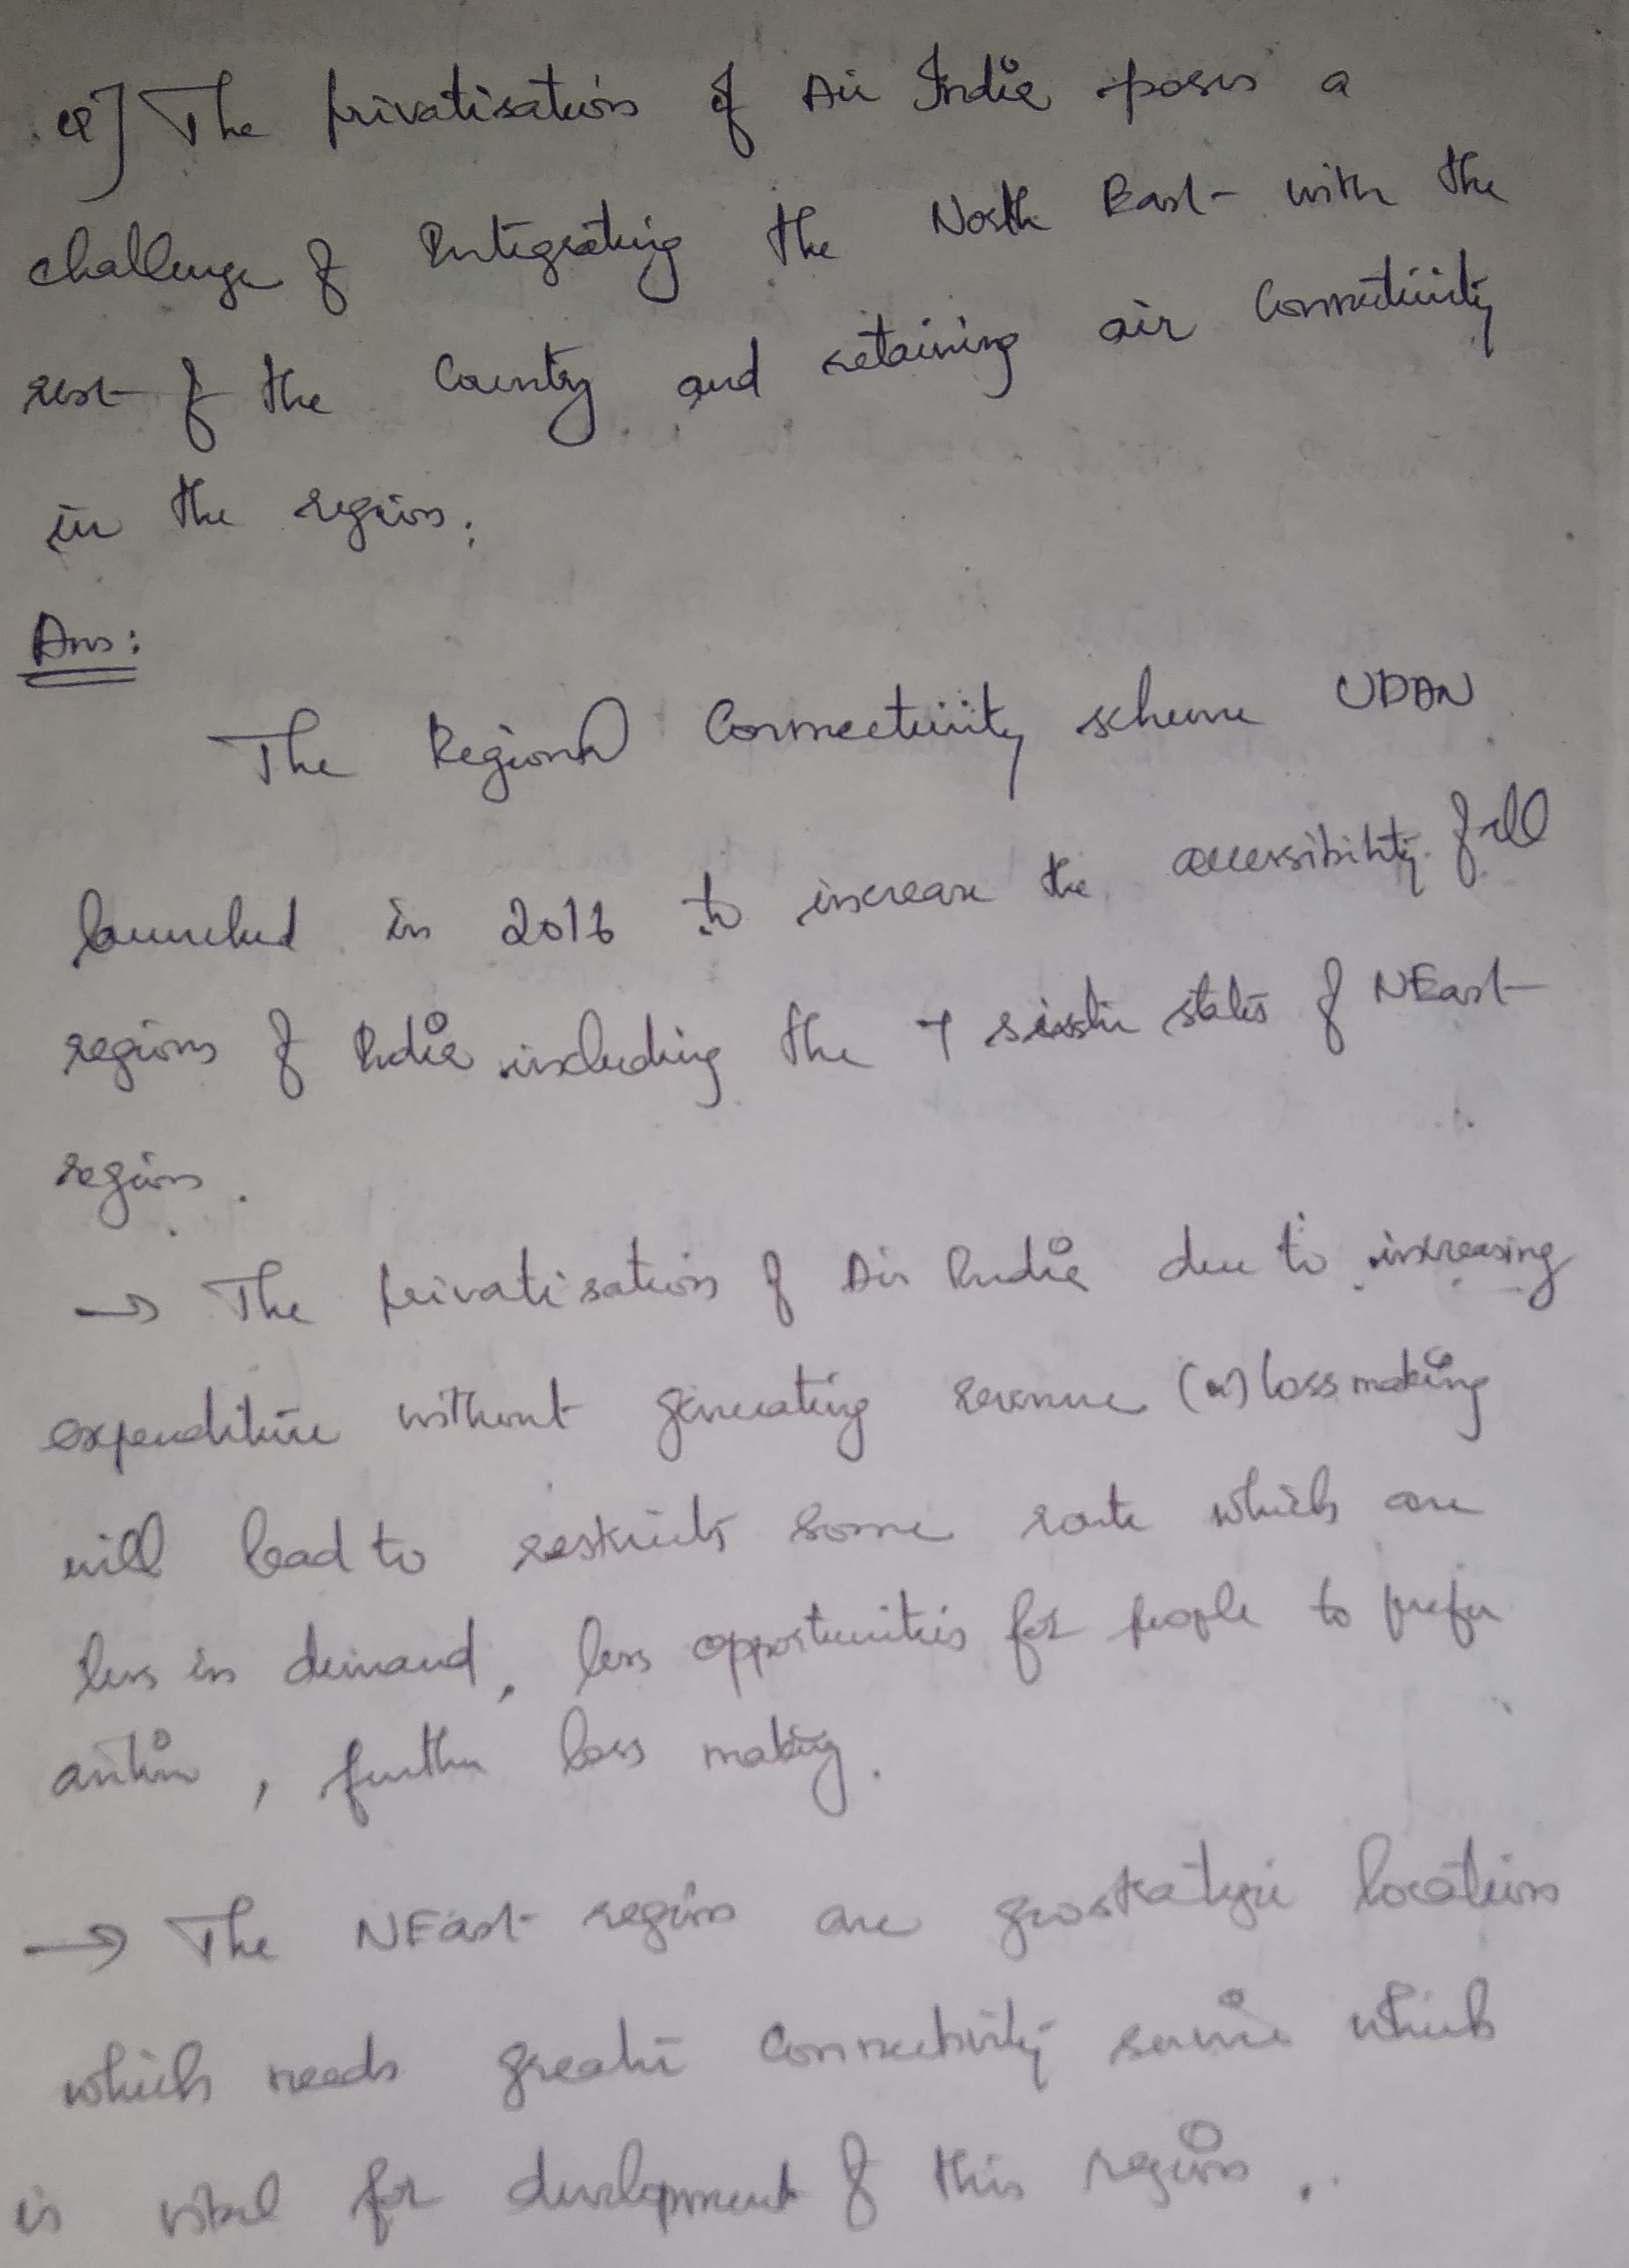 Q] The privatisation of Air India poses a
challenge of Integrating the North East with the
rest of the Country and retaining air Connectivity
in the region.
Ans:
The Regional Connectivity scheme UDAN
launched in 2016 to increase the accessibility of all
regions of India including the 7 sister states of NEast
region.
→ The privatisation of Air India due to increasing
expenditure without generating revenue (or) loss making
will lead to restricts some route which are
less in demand, less opportunities for people to prefer
, further loss making.
→ The NEast region are geostrategic locations
which needs greater Connectivity service which
is vital for development of this region.